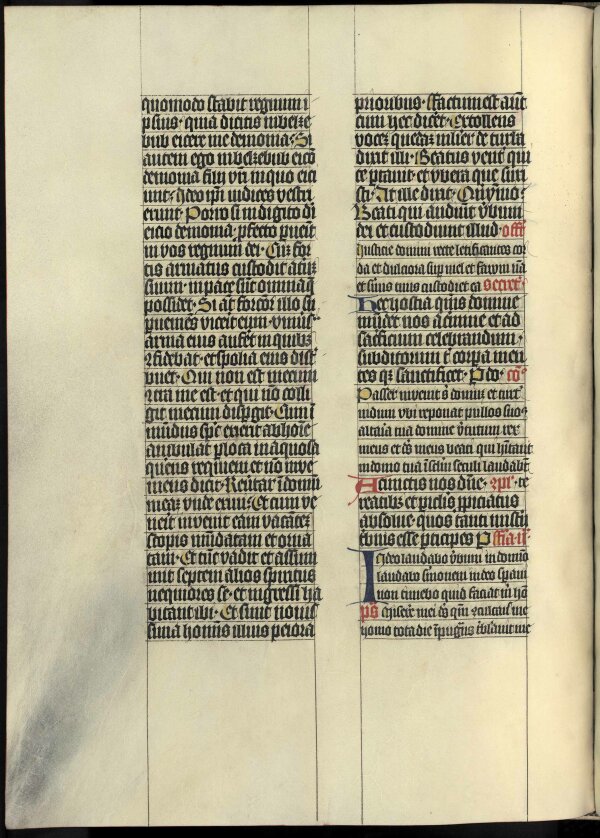 quomodo stabit regnum i
psius· quia dicitis in belze
bub eicere me demonia· Si
autem ego in belzebub eicio
demonia filij vri in quo eici
unt· ideo ipsi iudices vestri
erunt· Porro si in digito dei
eicio demonia· pfecto puenit
in vos regnum dei· Cum for
tis armatus custodit atriu
suum· in pace sunt omnia q
possidet· Si at fortior illo su
pueniens vicerit eum· vniusa
arma eius aufert in quibus
9fidebat· et spolia eius dist
buet· Qui non est mecum
9tra me est· et qui no colli
git mecum dispgit· Cum i
mudus spc exierit ab hoie
ambulat p loca inaquosa
querens requiem et no inve
niens dicit· Reutar in domu
mea vnde exiui· Et cum ve
nerit invenit eam vacante
scopis mudatam et orna
tam· Et tuc vadit et assum
mit septem alios spiritus
nequiores se· et ingressi ha
bitant ibi· Et sunt nouis
sima hominis illius peiora
prioribus· Factum est aute
cum hec diceret· Extollens
voce quedam mulier de turba
dixit illi· Beatus venter qui
te portauit· et vbera que suxi
sti· At ille dixit· Quinimo
Beati qui audiut verbum
dei et custodiunt illud· off
Iusticie domini recte letificantes cor
da et dulciora sup mel et fauum na
et seruus tuus custodiet ea secret
Hec hostia quis domine
mudet nos a crimine et ad
sacrificium celebrandum·
subditorum t corpa men
tes q sanctificet· P do· co
Passer invenit s domu et turt
nidum vbi reponat pullos suos
altaria tua domine virtutum rex
meus et ds meus beati qui hitant
in domo tua in sclm seculi laudabt
A cunctis nos dne· 9pl· re
reatibus et piclis ppiciatus
absolue· quos tanti mistii
tribuis esse pticipes P fia ii
In deo laudabo verbum in domino
laudabo sermonem in deo speraui
non timebo quid faciat m ho
ps Miserere mei ds qm conculcauit me
homo tota die ipugnas tribulauit me